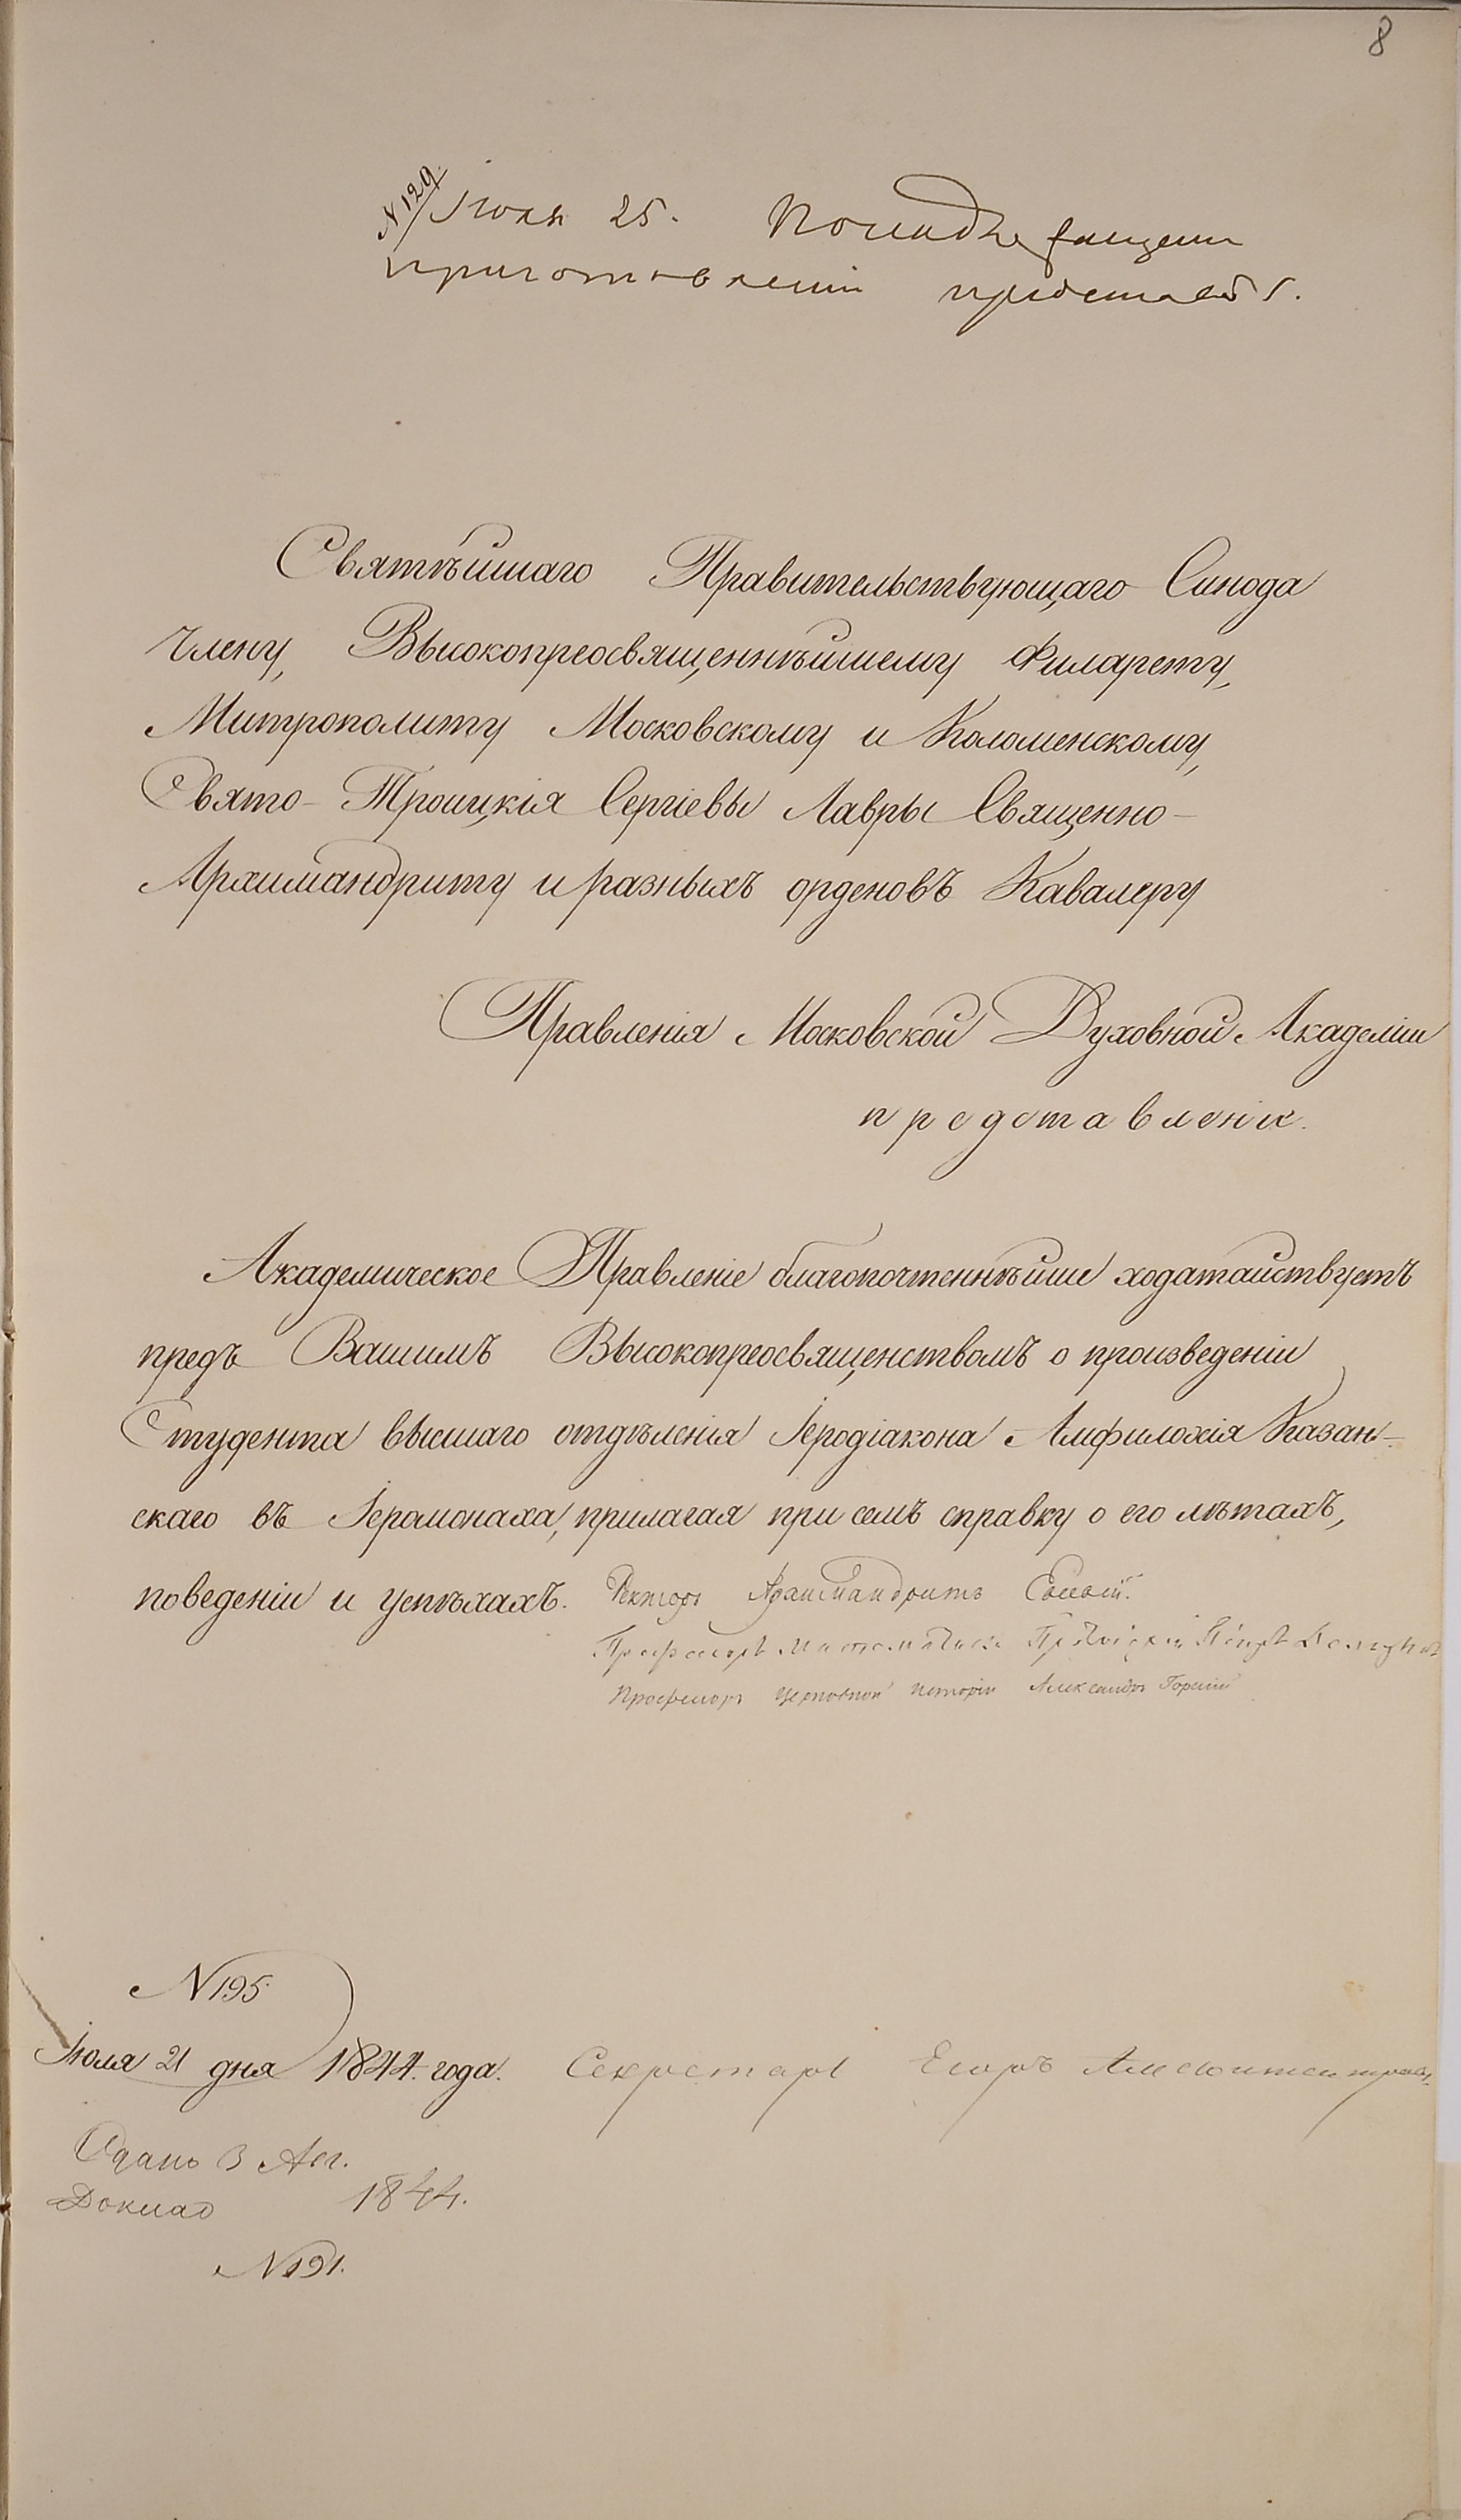 8
N 129.
Іюля 25. По надлежащем
приготовлении представить.
Святѣйшаго Правительствующаго Синода
Члену, Высокопреосвященнѣйшему Филарету,
Митрополиту Московскому и Коломенскому,
Свято-Троицкія Сергіевы Лавры Священно-
Архимандриту и разныхъ орденовъ Кавалеру
Правленія Московской Духовной Академіи
представленіе.
Академическое Правленіе благопочтеннѣйше ходатайствуетъ
предъ Вашимъ Высокопреосвященствомъ о произведеніи
Студента высшаго отдѣленія Іеродіакона Амфилохія Казан-
скаго въ Іеромонаха, прилагая при семъ справку о его лѣтахъ,
поведеніи и успѣхахъ.
Ректоръ Архимандритъ Евсевій.
Профессоръ Математики Протоіерей Петръ
Профессоръ Церковной Исторіи Александръ Горскій
N 195
Іюля 21 дня 1844. года.
Секретарь Егоръ
Сдано 3 Авг.
Доклад 1844.
N 191.